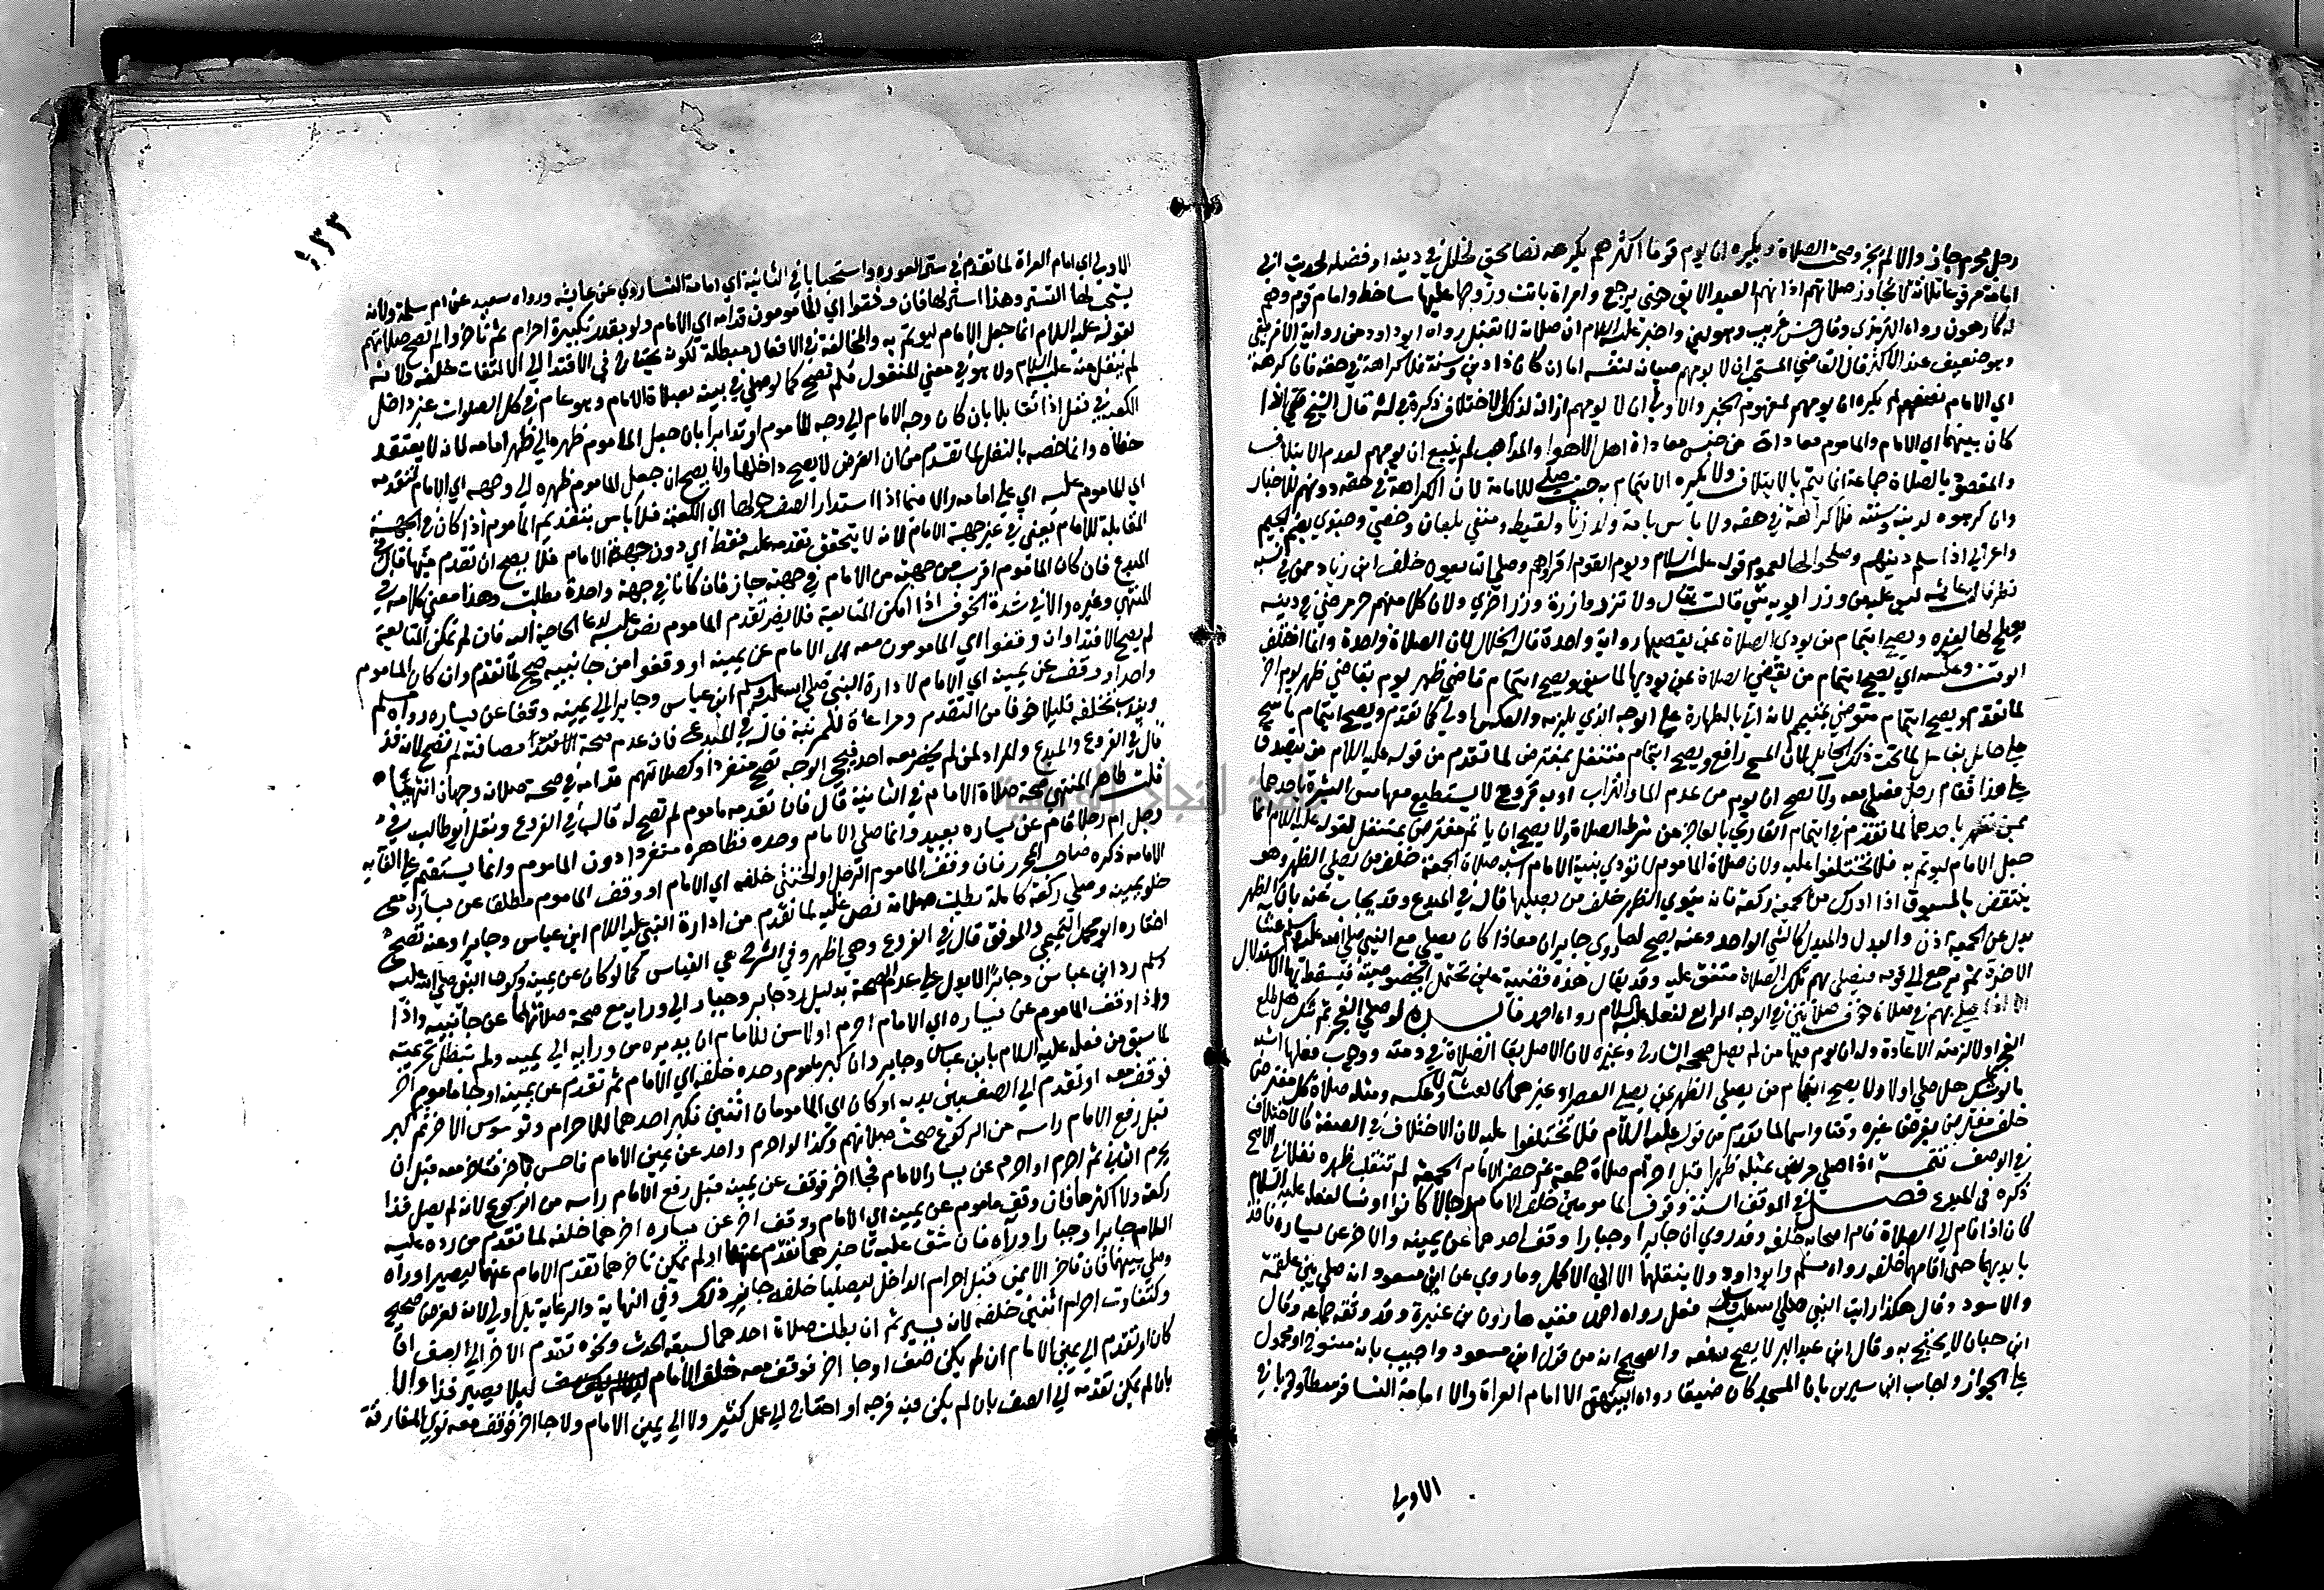 رجل محرم جاز والا لم يجز وصحت الصلاة ويكره ان يوم قوما اكثرهم يكرهه نصا بحق لخلل في دينه او فضله لحديث ابي
امامة مرفوعا ثلاثة لا تجاوز صلاتهم اذانهم العبد الابق حتى يرجع وامراة باتت وزوجها عليها ساخط وامام قوم وهم
له كارهون رواه الترمذي وقال حسن غريب وهو لين واخبر عليه السلام ان صلاته لا تقبل رواه ابو داود من رواية الافريقي
وهو ضعيف عند الاكثر قال القاضي المستحب ان لا يومهم صيانة لنفسه اما ان كان ذا دين وسنة فلا كراهة في حقه فان كرهه
اي الامام نصفهم لم يكره ان يومهم لمفهوم الخبر والاولى ان لا يومهم ازالة لذلك الاختلاف ذكره في الشرح قال الشيخ تقي الدين اذا
كان بينهما اي الامام والماموم معاداة من جنس معاداة اهل الاهوا والمذاهب لم ينبغ ان يومهم لعدم الايتلاف
والمقصود بالصلاة جماعة انما يتم بالايتلاف ولا يكره الايتمام به حيث صلح للامامة لان الكراهة في حقه دونهم للاخبار
وان كرهوه لدينه وسنته فلا كراهة في حقه ولا باس بامامة ولد زنا ولقيط ومنفي بلعان وخصي وجندي بضم الجيم
واعرابي اذا سلم دينهم وصلحوا لها لعموم قوله عليه السلام يوم القوم اقراهم وصلى التابعون خلف ابن زياد ممن في نسبه
نظر قالت عائشة ليس عليه من وزر ابويه شي قالت تعالى ولا تزر وازرة وزر اخرى ولان كلا منهم حر مرضي في دينه
يصلح لها لغيره ويصح ايتمام من يودي الصلاة بمن يقضيها رواية واحدة قال الخلال لان الصلاة واحدة وانما اختلف
الوقت وعكسه اي يصح ايتمام من يقضي الصلاة بمن يوديها لما سبق ويصح ايتمام قاضي ظهر يوم بقاضي ظهر يوم اخر
لما تقدم ويصح ايتمام متوضي بمتيمم لانه اتى بالطهارة على الوجه الذي يلزمه والعكس اولى كما تقدم ويصح ايتمام ماسح
على حائل بغاسل لما تحت ذلك الحايل لان المسح رافع ويصح ايتمام متنفل بمفترض لما تقدم من قوله عليه السلام من يتصدق
على هذا فقام رجل فصلى معه ولا يصح ان يوم من عدم الما والتراب او به قروح لا يستطيع معها مس البشرة باحدهما
بمن تطهر باحدهما لما تقدم في ايتمام القاري بالعاجز عن شرط الصلاة ولا يصح ان ياتم مفترض بمتنفل لقوله عليه السلام انما
جعل الامام ليوتم به فلا تختلفوا عليه ولان صلاة الماموم لا تودى بنية الامام اشبه صلاة الجمعة خلف من يصلي الظهر وهو
ينتقض بالمسبوق اذا ادرك من الجمعة دون ركعة فانه ينوي الظهر خلف من يصليها قاله في المبدع وقد يجاب عنه بان الظهر
بدل عن الجمعة اذن والبدل والمبدل كالشي الواحد وعنه يصح لما روى جابر ان معاذا كان يصلي مع النبي صلى الله عليه وسلم عشا
الاخرة ثم يرجع الى قومه فيصلي بهم تلك الصلاة متفق عليه وقد يقال هذه قضية عين تحتمل الخصوصية فيسقط بها الاستدلال
الا اذا صلى بهم في صلاة خوف صلاتين في الوجه الرابع لفعله عليه السلام رواه احمد فان لو صلى الفجر ثم شك هل طلع
الفجر او لا لزمته الاعادة وله ان يوم فيها من لم يصل صححه الشارح وغيره لان الاصل بقا الصلاة في ذمته ووجوب فعلها اشبه
ما لو شك هل صلى او لا ولا يصح ايتمام من يصلي الظهر بمن يصلي العصر او غيرهما كالعشا ولا عكسه ومثله صلاة كل مفترض
خلف مفترض بفرض غيره وقتا واسما لما تقدم من قوله عليه السلام فلا تختلفوا عليه لان الاختلاف في الصفة كالاختلاف
في الوصف تتمة اذا صلى مريض بمثله ظهرا قبل احرام صلاة جمعة ثم حضر الامام الجمعة لم تنقلب ظهره نفلا في الاصح
ذكره في المبدع فصـل في الموقف السنة وقوف المامومين خلف الامام رجالا كانوا او نسا لفعله عليه السلام
كان اذا قام الى الصلاة قام اصحابه خلفه وقد روي ان جابرا وجبارا وقف احدهما عن يمينه والاخر عن يساره فاخذ
بايديهما حتى اقامهما خلفه رواه مسلم وابو داود ولا ينقلهما الا الى الاكمل وما روي عن ابن مسعود انه صلى بين علقمة
والاسود وقال هكذا رايت النبي صلى الله عليه وسلم فعل رواه احمد ففيه هارون بن عنترة وقد وثقه جماعة وقال
ابن حبان لا يحتج به وقال ابن عبد البر لا يصح رفعه والصحيح انه من قول ابن مسعود واجيب بانه منسوخ او محمول
على الجواز واجاب ابن سيرين بان المسجد كان ضيقا رواه البيهقي الا امام العراة والا امامة النسا فوسطا وجوبا في
الاولى
١٣٣
الاولى اي امام العراة لما تقدم في ستر العورة واستحبابا في الثانية اي امامة النسا روي عن عايشة ورواه سعيد عن ام سلمة ولانه
يستحب لها التستر وهذا استر لها فان وقفوا اي المامومون قدامه اي الامام ولو بقدر تكبيرة احرام ثم تاخروا لم تصح صلاتهم
لقوله عليه السلام انما جعل الامام ليوتم به والمخالفة في الافعال مبطلة لكونه يحتاج في الاقتدا الى الالتفات خلفه ولانه
لم ينقل عنه عليه السلام ولا هو في معنى المنقول فلم تصح كما لو صلى في بيته بصلاة الامام وهو عام في كل الصلوات غير داخل
الكعبة في نفل اذا تقابلا بان كان وجه الامام الى وجه الماموم او تدابرا بان جعل الماموم ظهره الى ظهر امامه لانه لا يعتقد
خطاه وانما خصه بالنفل لما تقدم من ان الفرض لا يصح داخلها ولا يصح ان جعل الماموم ظهره الى وجهه اي الامام لتقدمه
اي الماموم عليه اي على امامه والا فيما اذا استدار الصف حولها اي الكعبة فلا باس بتقديم الماموم اذا كان في الجهة
المقابلة للامام يعني في غير جهة الامام لانه لا يتحقق تقدمه عليه فقط اي دون جهة الامام فلا يصح ان تقدم فيها قال في
المبدع فان كان الماموم اقرب من جهته من الامام في جهته جاز فان كانا في جهة واحدة بطلت وهذا معنى كلامه في
المنتهى وغيره والا في شدة الخوف اذا امكن المتابعة فلا يضر تقدم الماموم نص عليه لدعا الحاجة اليه فان لم تمكن المتابعة
لم يصح الاقتدا وان وقفوا اي المامومون معه اي الامام عن يمينه او وقفوا من جانبيه صح لما تقدم وان كان الماموم
واحدا وقف عن يمينه اي الامام لادارة النبي صلى الله عليه وسلم ابن عباس وجابر الى يمينه وقفا عن يساره رواه مسلم
ويندب تخلفه قليلا خوفا من التقدم ومراعاة للمرتبة قال في المبدع فان عدم صحة الاقتدا مصافته لم تصح لانه فذ
قال في الفروع والمبدع والمراد لمن لم يحضر معه احد فيجي الوجه تصح منفردا وكصلاتهم قدامه في صحة صلاته وجهان انتهى
قلت ظاهر المنتهى صحة صلاة الامام في الثانية قال فان تقدمه ماموم لم تصح له قال في الفروع ونقل ابو طالب في
رجل ام رجلا قام عن يساره يعيد وانما صلى الامام وحده فظاهره منفردا دون الماموم وانما يستقيم على الغاية
الامامة ذكره صاحب المحرر فان وقف الماموم الرجل او الخنثى خلفه اي الامام او وقف الماموم مطلقا عن يساره مع
خلو يمينه وصلى ركعة كاملة بطلت صلاته نص عليه لما تقدم من ادارة النبي عليه السلام ابن عباس وجابرا وعنه تصح
اختاره ابو محمد التميمي والموفق قال في الفروع وهي اظهر وفي الشرح هي القياس كما لو كان عن يمينه وكون النبي صلى الله عليه
وسلم رد ابن عباس وجابرا لا يدل على عدم الصحة بدليل رد جابر وجبار الى ورايه مع صحة صلاتهما عن جانبيه واذا
واذا وقف الماموم عن يساره اي الامام احرم او لا سن للامام ان يديره من ورايه الى يمينه ولم تبطل تحريمته
لما سبق من فعله عليه السلام بابن عباس وجابر وان كبر ماموم وحده خلفه اي الامام ثم تقدم عن يمينه او جا ماموم اخر
فوقف معه او تقدم الى الصف بين يديه او كان اي المامومان اثنين فكبر احدهما للاحرام وتوسوس الاخر ثم كبر
قبل رفع الامام راسه من الركوع صحت صلاتهم وكذا لو احرم واحد عن يمين الامام فاحس باخر فتاخر معه قبل ان
يحرم الثاني ثم احرم او احرم عن يسار الامام فجا اخر فوقف عن يمينه قبل رفع الامام راسه من الركوع لانه لم يصل فذا
ركعة ولا اكثرها فان وقف ماموم عن يمينه اي الامام ووقف اخر عن يساره اخرهما خلفه لما تقدم من رده عليه
السلام جابرا وجبارا وراه فان شق عليه تاخيرهما تقدم عنهما او لم يمكن تاخرهما تقدم الامام عنهما ليصيرا وراه
وصلى بينهما فان تاخر الايمن قبل احرام الداخل ليصليا خلفه جاز ذلك وفي النهاية والرعاية بل اولى لانه لغرض صحيح
وكتفاوت احرام اثنين خلفه لانه يسير ثم ان بطلت صلاة احدهما لسبقه الحدث ونحوه تقدم الاخر الى الصف ان
كان او تقدم الى يمين الامام ان لم يكن صف او جا اخر فوقف معه خلف الامام ليلا يصير فذا والا
بان لم يمكن تقدمه الى الصف بان لم يكن فيه فرجة او احتاج الى عمل كثير ولا الى يمين الامام ولا جا اخر فوقف معه نوى المفارقة